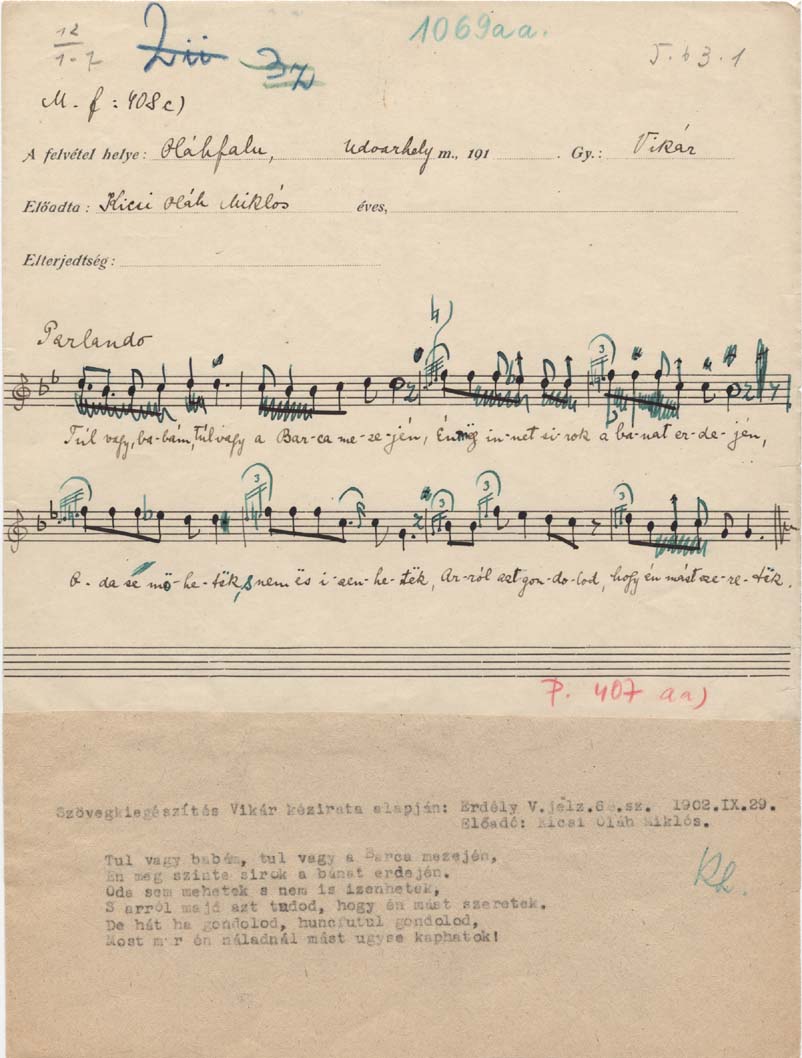 12
1-7
1069aa.
M. f: 408c)
A felvétel helye: Oláhfalu, Udvarhely m., 191 Gy.: Vikár
Előadta: Kicsi Oláh Miklós éves,
Elterjedtség:
Parlando
3
Túl vagy, ba-bám, túl vagy a Bar-ca me-ze-jén, Én még in-net si-rok a bá-nat er-de-jén,
3 3 3
O-da së mö-he-tëk, s nem ës i-zen-he-tëk, Ar-ról azt gon-do-lod, hogy én mást sze-re-tëk.
P. 407 aa)
Szövegkiegészítés Vikár kézirata alapján: Erdély V.jelz.6 .sz. 1902.IX.29.
Előadó: Kicsi Oláh Miklós.
Tul vagy babám, tul vagy a Barca mezején,
Én meg szinte sirok a bánat erdején.
Oda sem mehetek s nem is izenhetek,
S arról majd azt tudod, hogy én mást szeretek.
De hát ha gondolod, huncfutul gondolod,
Most már én náladnál mást ugyse kaphatok!